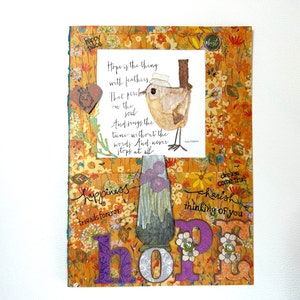 Hope is the thing
with feathers
That perches
in the
soul
And sings the
tune without the
words And never
stops at all
happiness
cherish
thinking of you
hope